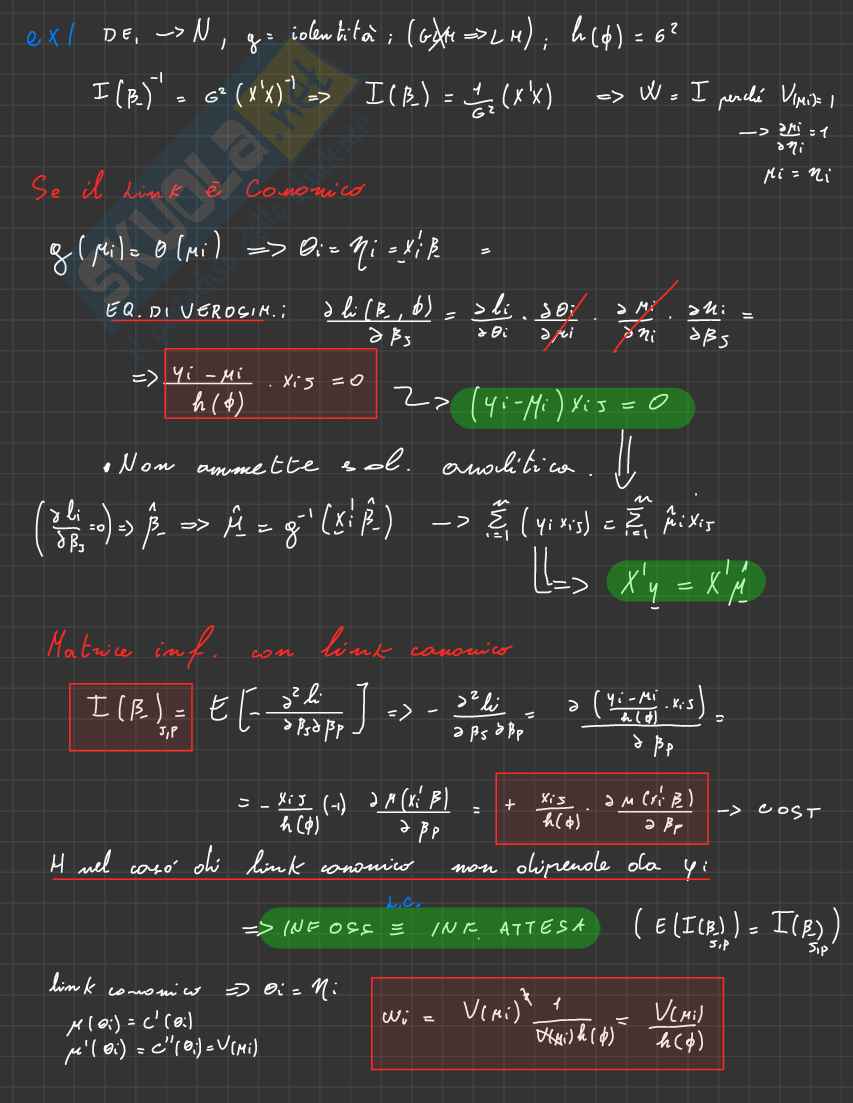 ex1 DE, → N, g = identità ; (GLM ⇒ LM) ; h(ϕ) = σ²
I(β)⁻¹ = σ² (X'X)⁻¹ ⇒ I(β) = 1/σ² (X'X) ⇒ W = I perché V(μi) = 1
→ ∂μi/∂ηi = 1
μi = ηi
Se il Link è Canonico
g(μi) = θ(μi) ⇒ θi = ηi = xi'β =
EQ. DI VEROSIM.: ∂li(β, ϕ)/∂βs = ∂li/∂θi · ∂θi/∂μi · ∂μi/∂ηi · ∂ηi/∂βs =
⇒ (yi - μi)/h(ϕ) · xis = 0 → (yi - μi) xis = 0
• Non ammette sol. analitica.
(∂li/∂βs = 0) ⇒ β̂ ⇒ μ̂ = g⁻¹(xi'β̂) → Σ i=1 n (yi xis) = Σ i=1 n μ̂i xis
⇒ X'y = X'μ̂
Matrice inf. con link canonico
I(β)s,p = E[-∂²li/∂βs∂βp] ⇒ - ∂²li/∂βs∂βp = ∂((yi - μi)/h(ϕ) · xis)/∂βp =
= - xis/h(ϕ) (-1) ∂μ(xi'β)/∂βp = + xis/h(ϕ) · ∂μ(xi'β)/∂βp → COST
H nel caso di link canonico non dipende da yi
L.C.
⇒ INF OSS ≡ INF. ATTESA (E(I(β)s,p) = I(β)s,p)
link canonico ⇒ θi = ηi
μ(θi) = c'(θi)
μ'(θi) = c''(θi) = V(μi)
wi = V(μi)² 1/(V(μi) h(ϕ)) = V(μi)/h(ϕ)
SKUOLA.net